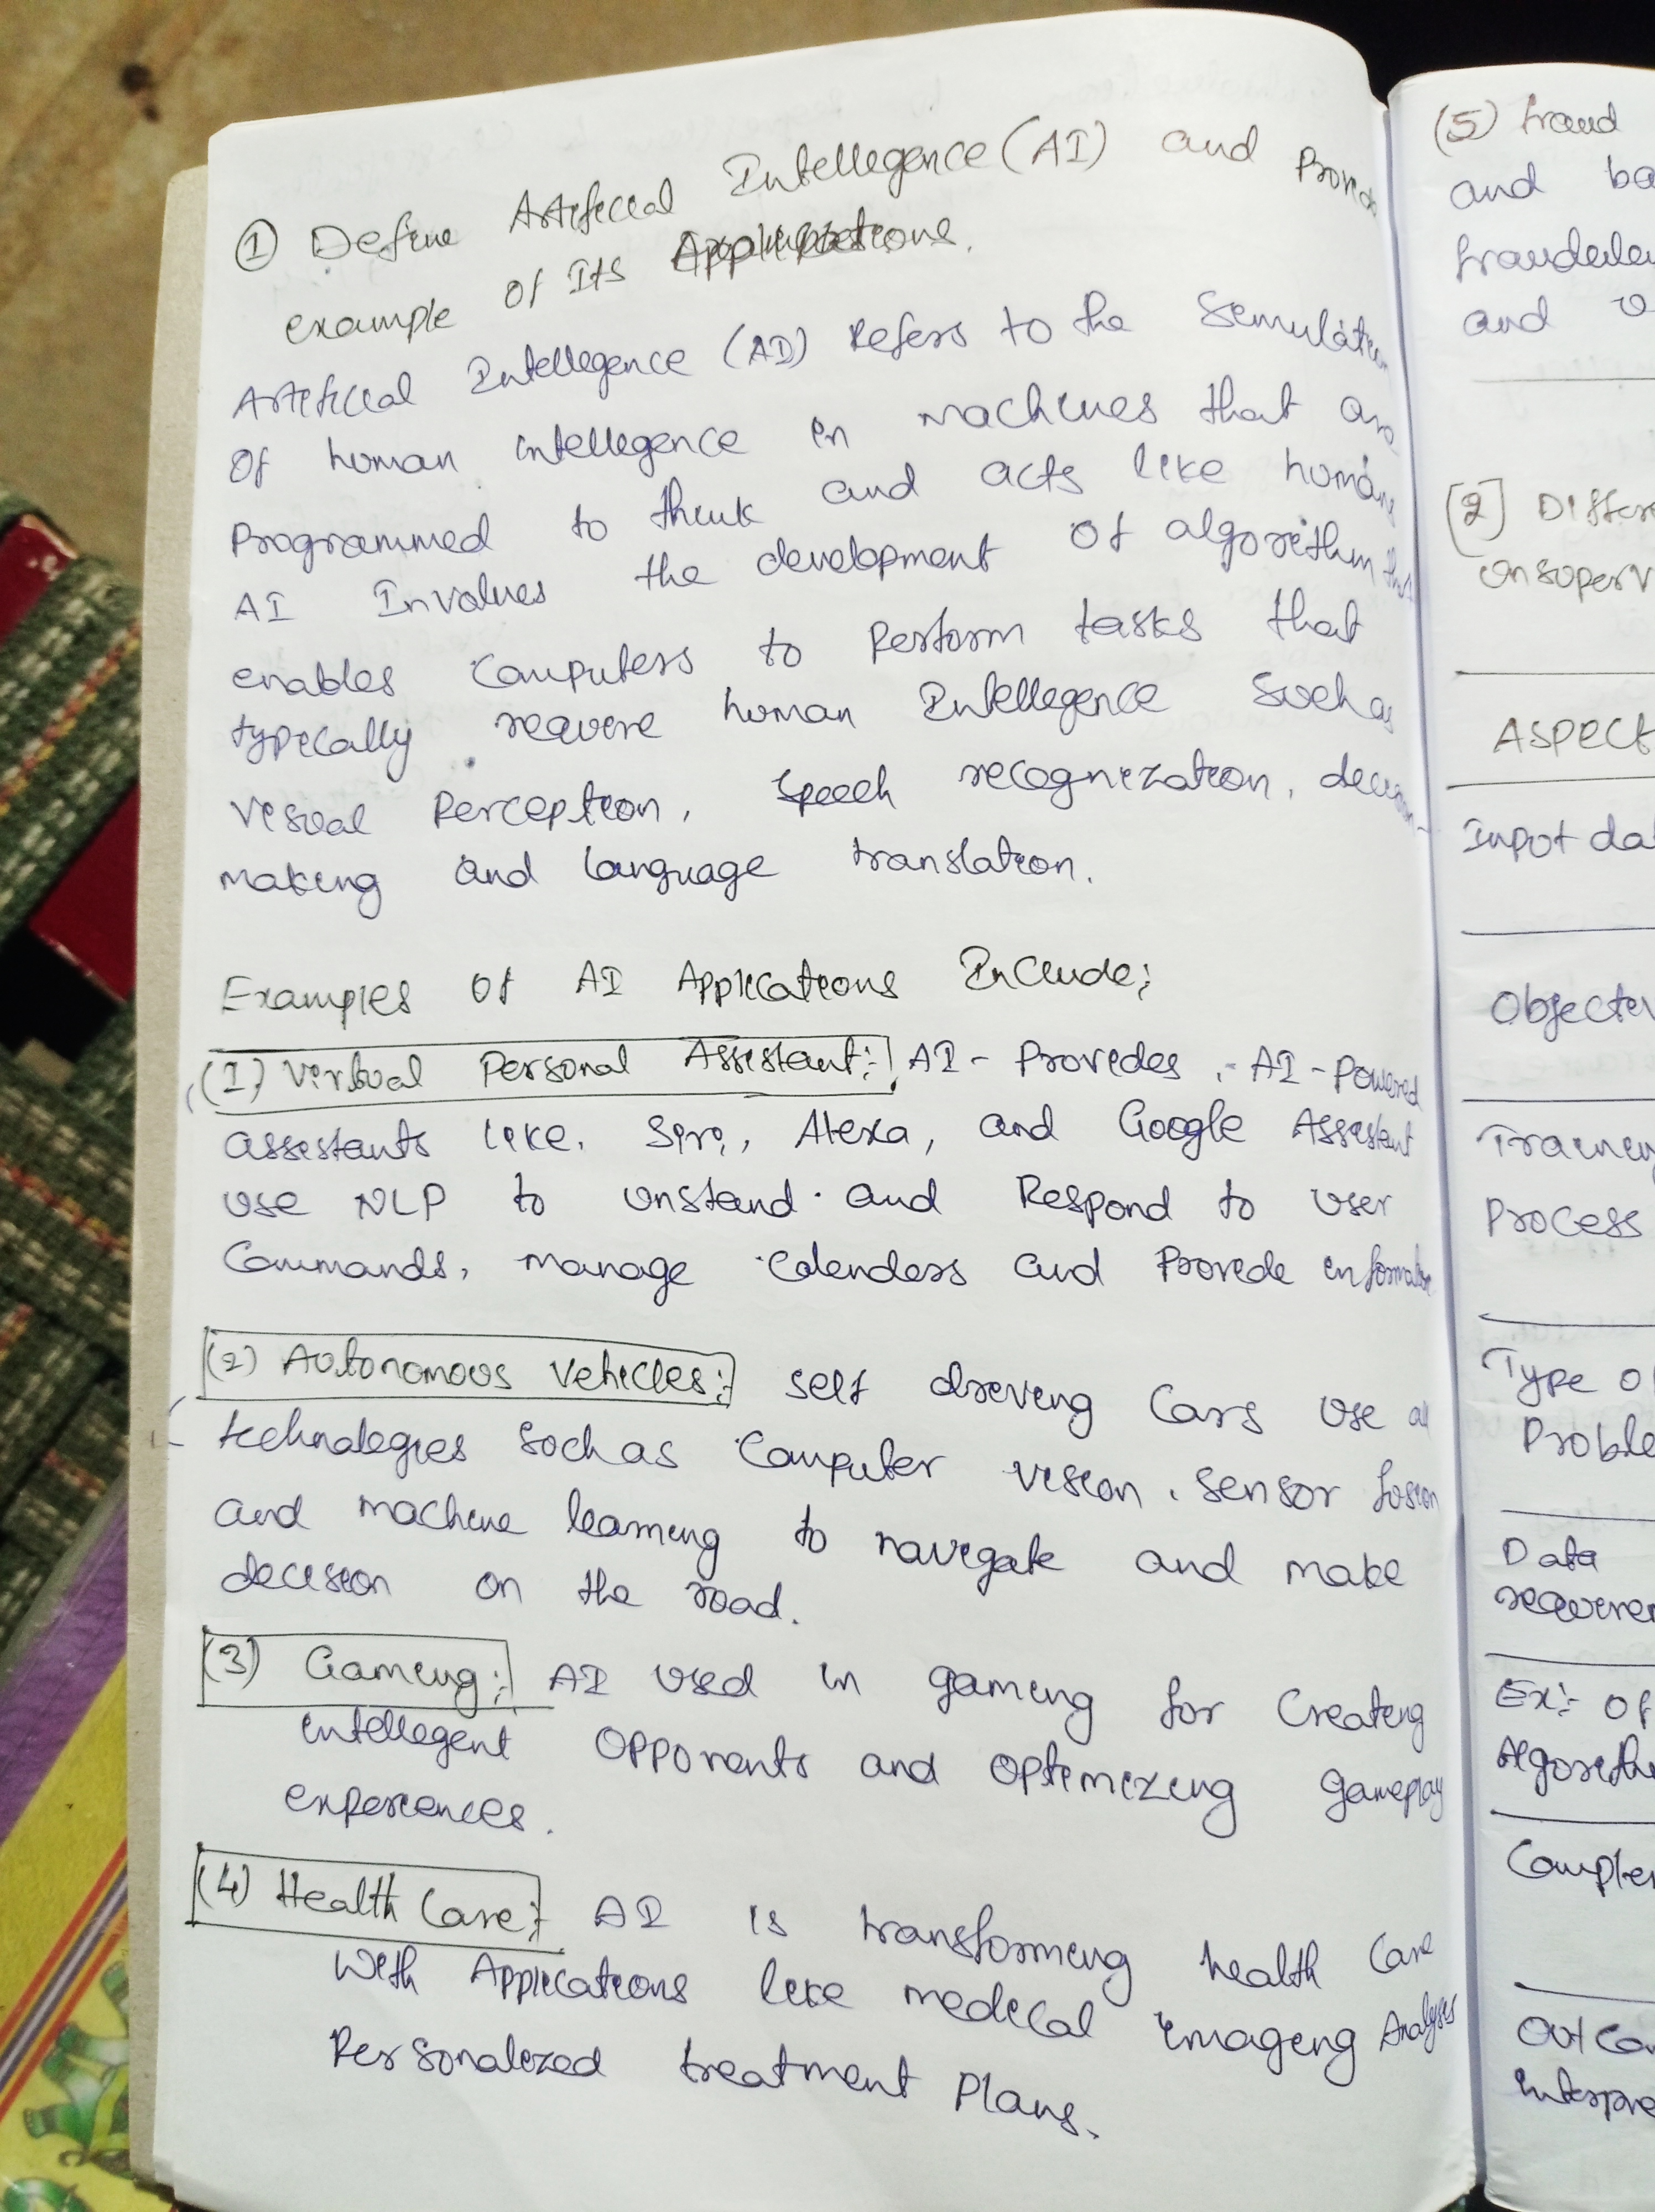 ① Define Artificial Intellegence (AI) and Provide
example of Its Applications.
Artificial Intellegence (AI) Refers to the Simulation
Of human intellegence in machines that are
Programmed to think and acts like human
AI Involves the development of algorithm that
enables Computers to Perform tasks that
typically require human Intellegence Such as
Visual Perception, Speech recognization, decision-
making and language translation.
Examples Of AI Applications Include;
(1) Virtual Personal Assistant:- AI-Provides, - AI-Powered
assistants like, Siri, Alexa, and Google Assistant
use NLP to unstand and Respond to user
Commands, manage Calenders and Provide information
(2) Autonomous Vehicles:- Self driving Cars use
technologies such as Computer vision, Sensor fusion
and machine learning to navigate and make
decision on the road.
(3) Gaming:- AI used in gaming for Creating
intellegent Opponents and Optimizing gameplay
experiences.
(4) Health Care:- AI is transforming health Care
With Applications like medical imaging Analysis
Personalized treatment Plans.
(5) fraud
and ba
fraudule
and
[2] Differe
unsuperv
Aspect
Input da
Objectiv
Training
Process
Type of
Proble
Data
requirem
Ex:- Of
Algorithm
Complex
Outcom
interpre